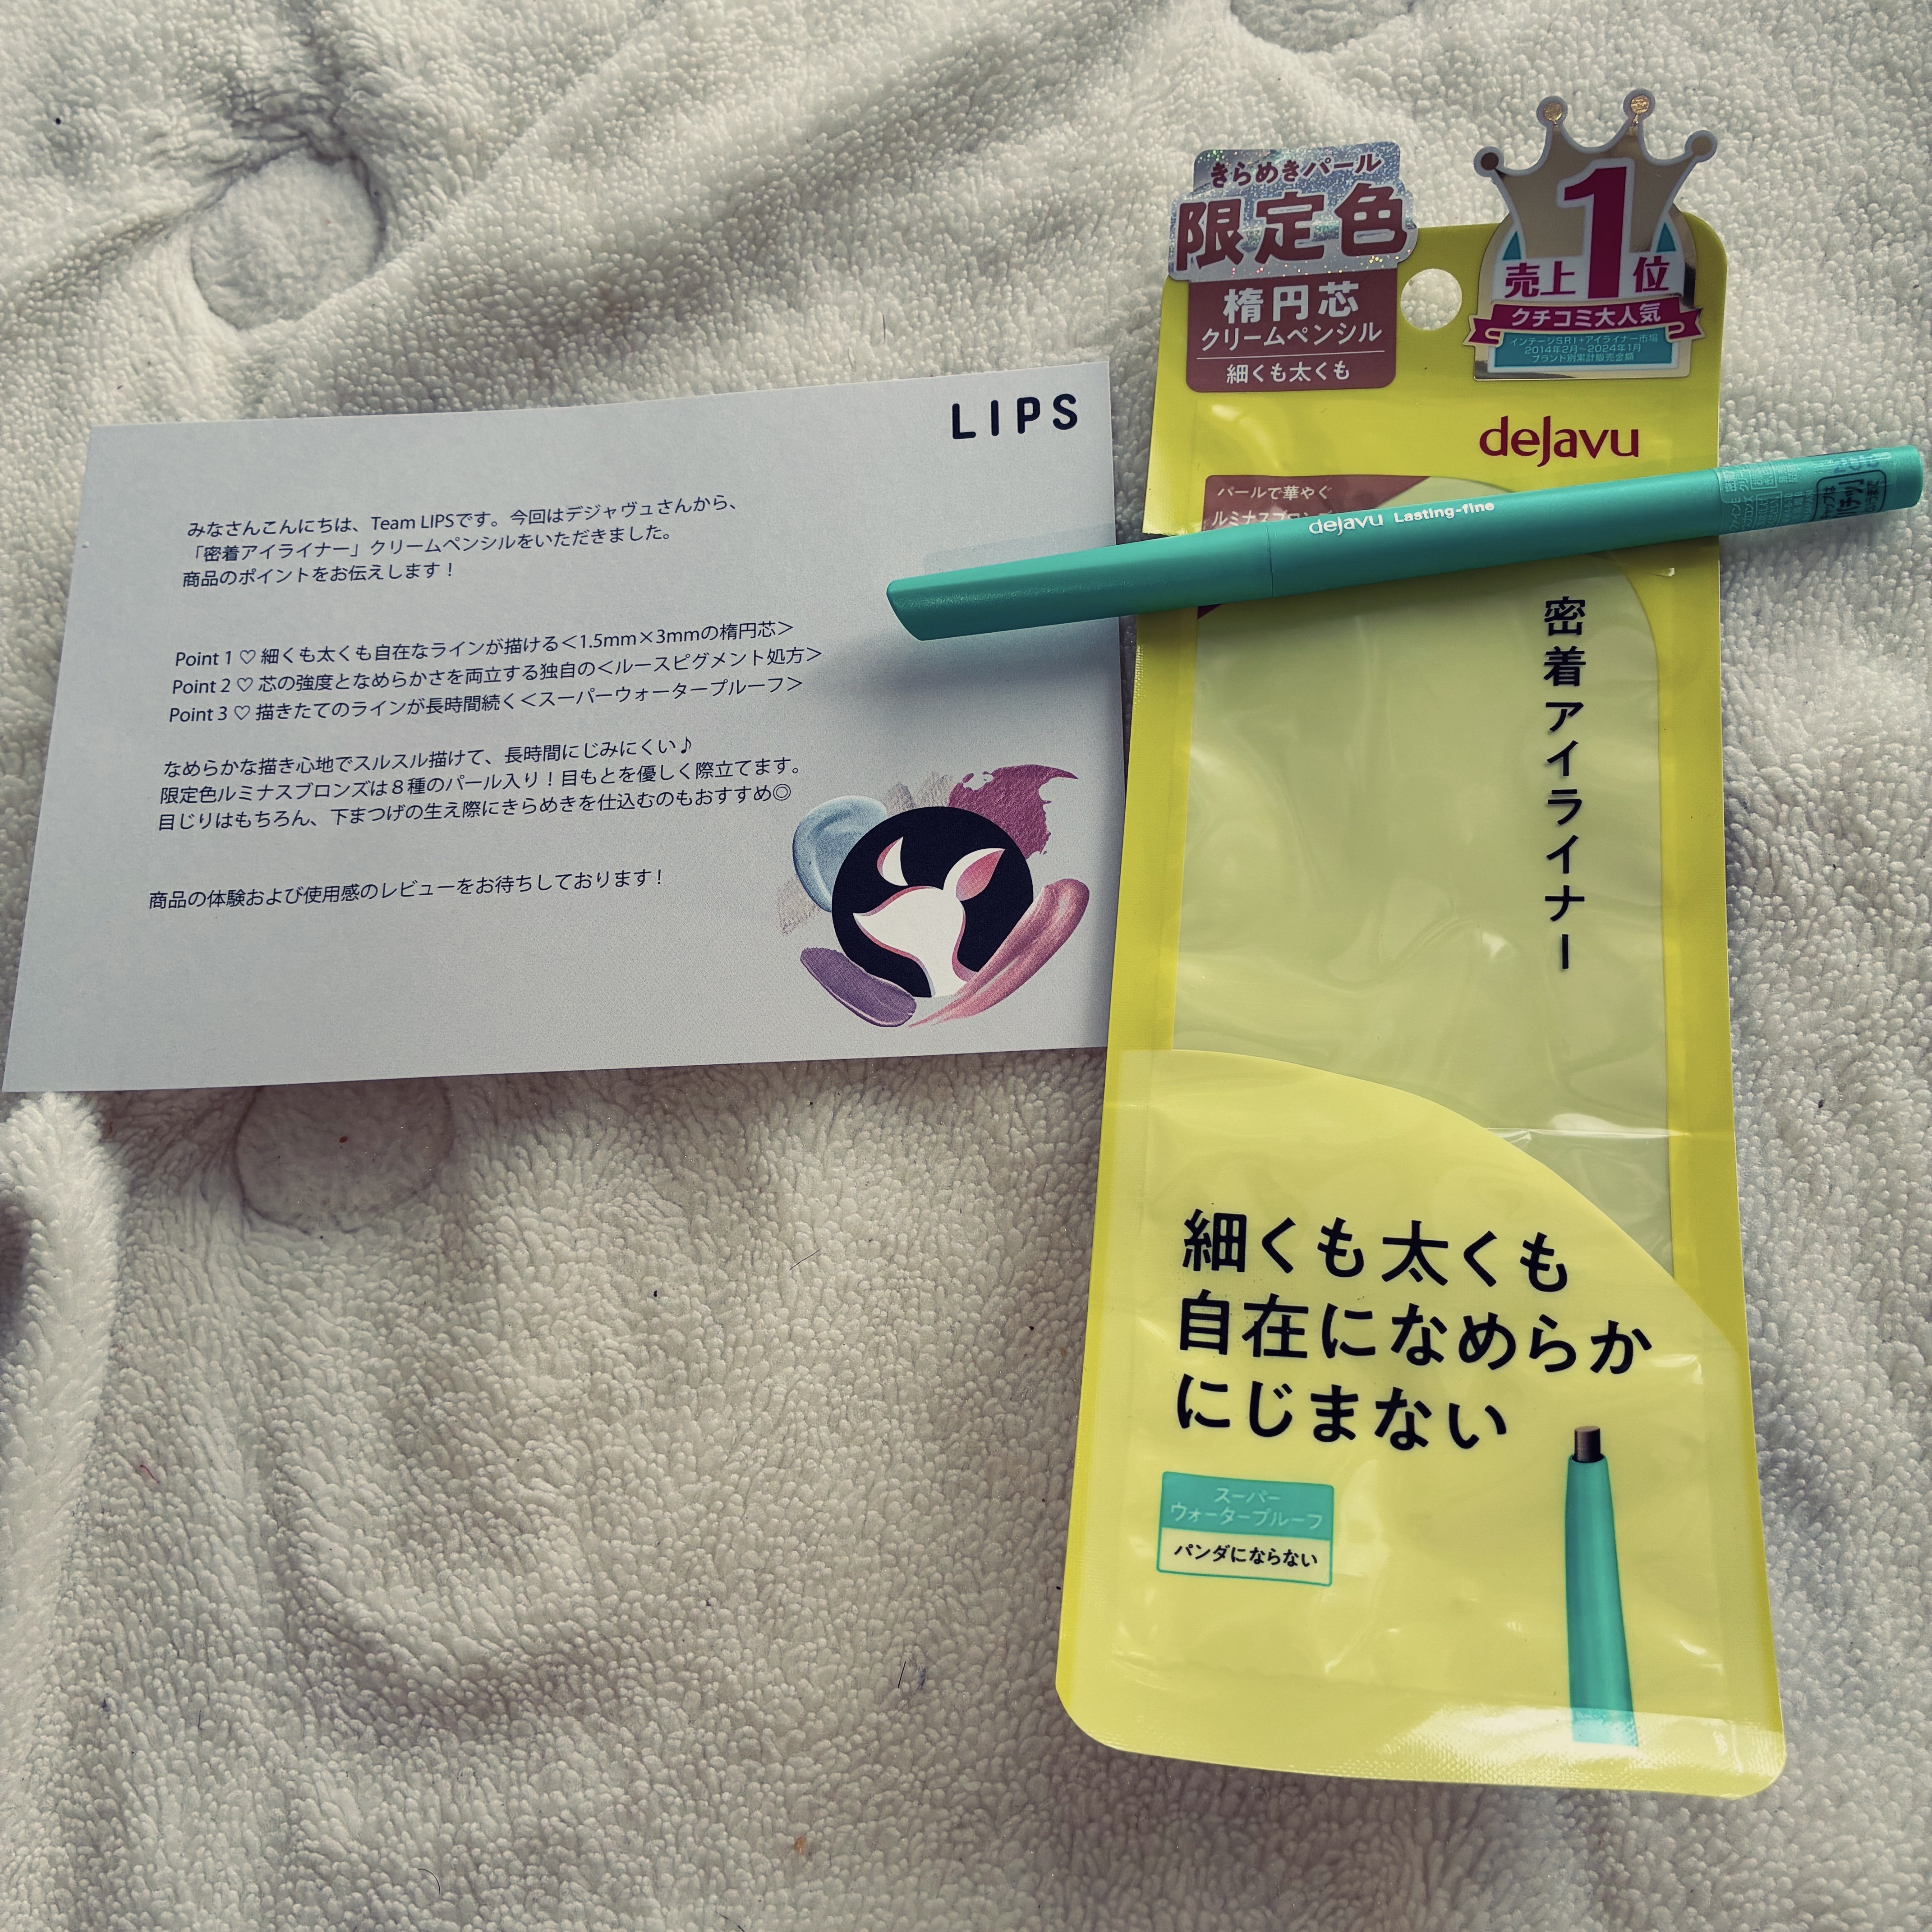 LIPS
みなさんこんにちは、Team LIPSです。今回はデジャヴュさんから、
「密着アイライナー」クリームペンシルをいただきました。
商品のポイントをお伝えします！
Point 1 ♡ 細くも太くも自在なラインが描ける＜1.5mm×3mmの楕円芯＞
Point 2 ♡ 芯の強度となめらかさを両立する独自の＜ルースピグメント処方＞
Point 3 ♡ 描きたてのラインが長時間続く＜スーパーウォータープルーフ＞
なめらかな描き心地でスルスル描けて、長時間にじみにくい♪
限定色ルミナスブロンズは８種のパール入り！目もとを優しく際立てます。
目じりはもちろん、下まつげの生え際にきらめきを仕込むのもおすすめ◎
商品の体験および使用感のレビューをお待ちしております！
きらめきパール
限定色
楕円芯
クリームペンシル
細くも太くも
1
売上 位
クチコミ大人気
インテージSRI+アイライナー市場
2014年2月～2024年1月
ブランド別累計販売金額
dejavu
パールで華やぐ
ルミナスブロンズ
dejavu Lasting-fine
密着アイライナー
細くも太くも
自在になめらか
にじまない
スーパー
ウォータープルーフ
パンダにならない